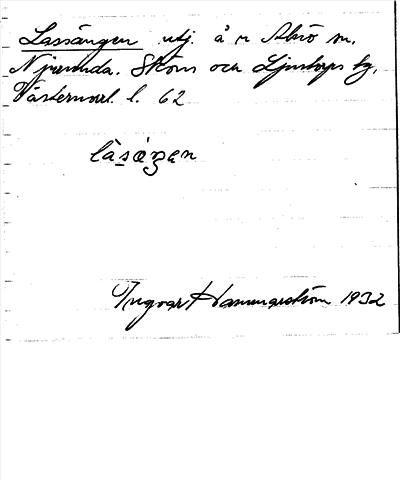 Lassängen utj. å n Alnö sn.
Njurunda. Sköns och Ljustorps tg.
Västernorrl. l. 62
làsǝŋǝn
Ingvar Hammarström 1932